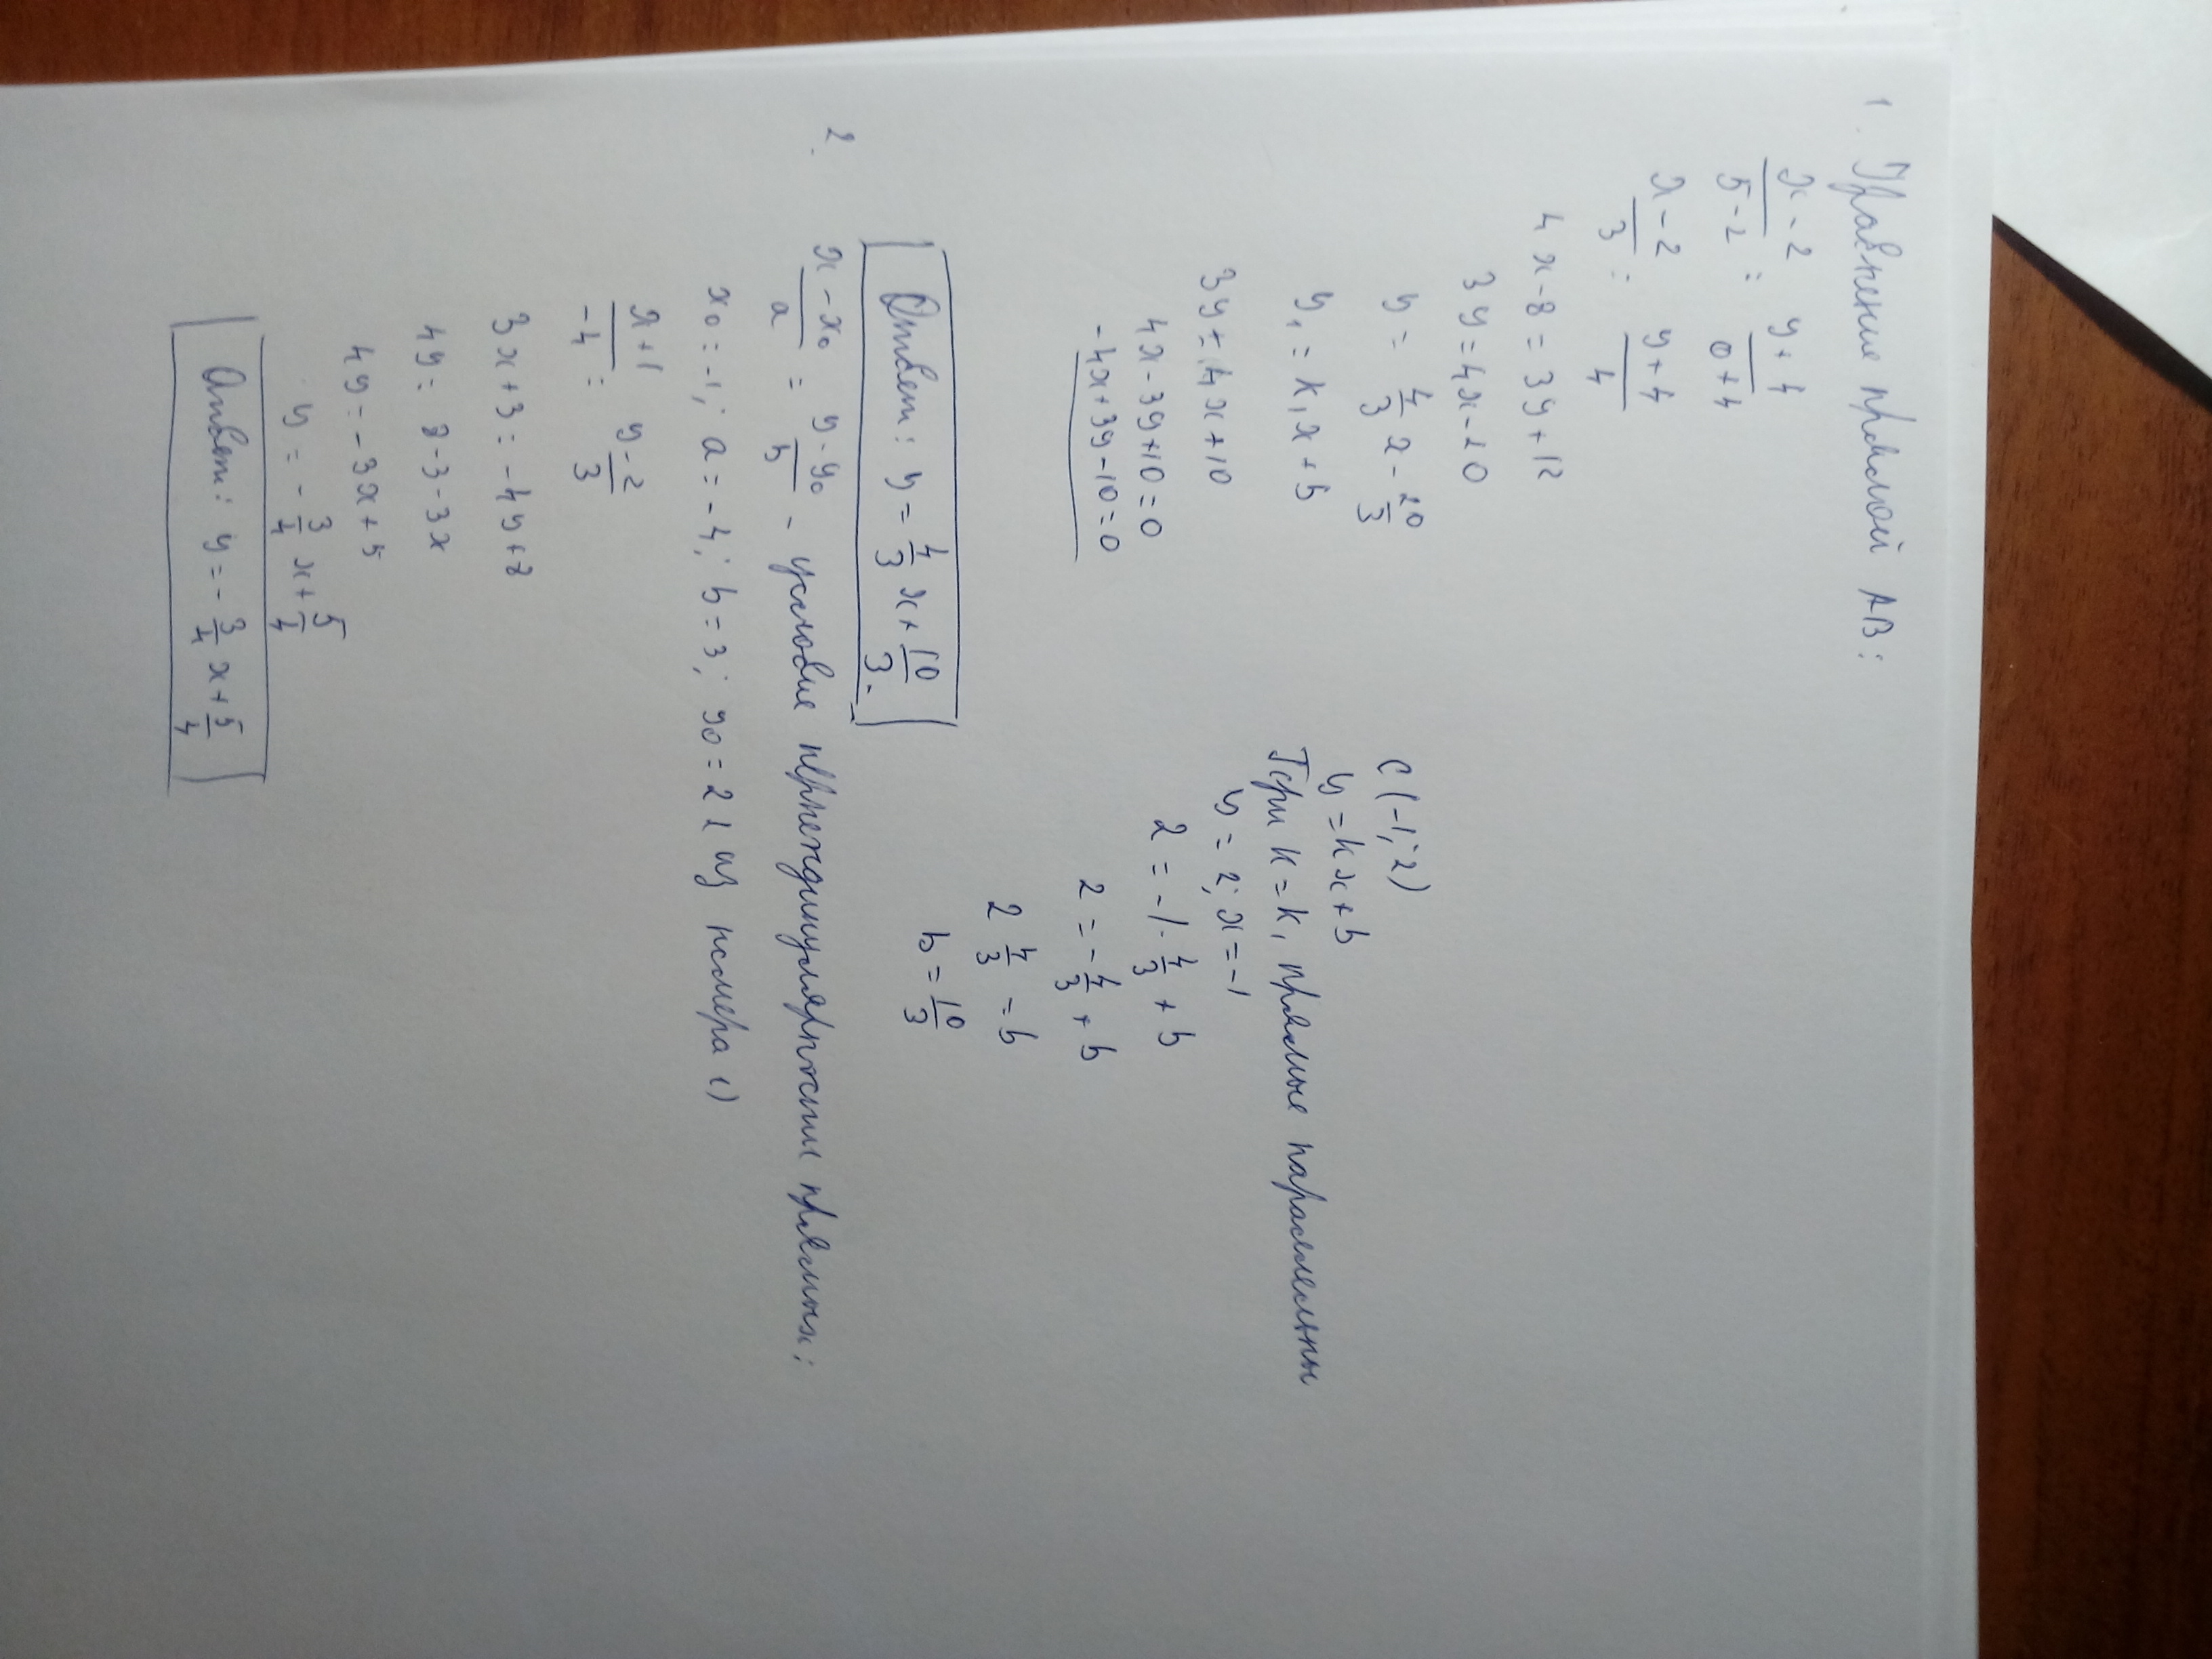 1. Уравнение прямой АВ:
x-2/5-2 = y+4/0+4
x-2/3 = y+4/4
4x-8=3y+12
3y=4x-20
y= 4/3 x - 20/3
y₁=k₁x+b
3y=4x+10
4x-3y+10=0
-4x+3y-10=0
C(-1;2)
y=kx+b
При k=k₁ прямые параллельны
y=2; x=-1
2=-1·4/3+b
2=-4/3+b
2 4/3=b
b=10/3
Ответ: y=4/3 x+10/3.
2. x-x₀/a = y-y₀/b - условие перпендикулярности прямых:
x₀=-1; a=-4; b=3; y₀=2 из номера 1)
x+1/-4 = y-2/3
3x+3=-4y+8
4y=8-3-3x
4y=-3x+5
y=-3/4 x+5/4
Ответ: y=-3/4 x+5/4